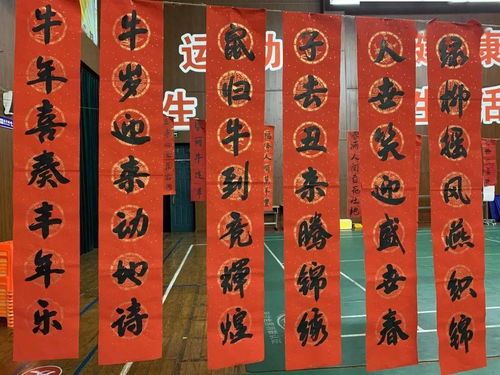 牛年喜奏丰年乐
牛岁迎来动地诗
鼠归牛到竞辉煌
子去丑来腾锦绣
人世笑迎盛世春
绿柳摇风燕织锦
运动 康
生 活